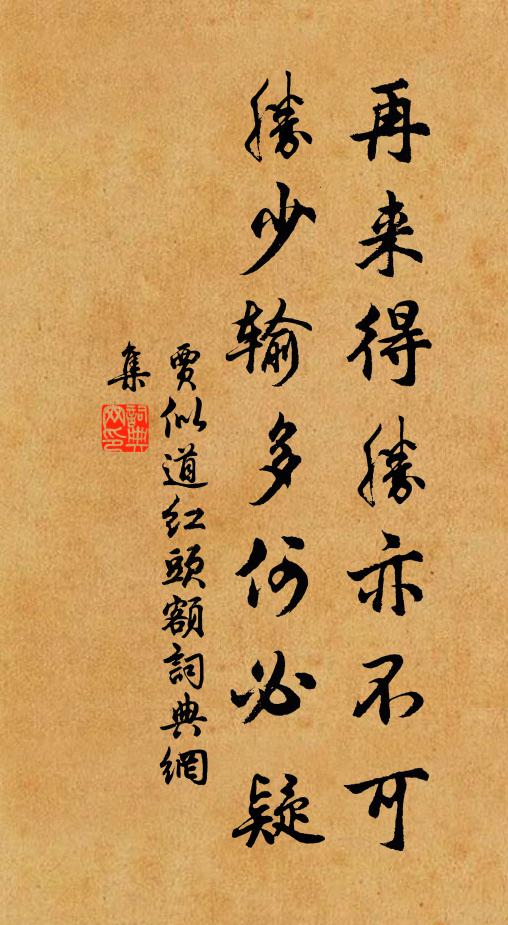 再来得勝亦不可
勝少输多何必疑
賈似道红頭额詞典網
集
詞典
网印